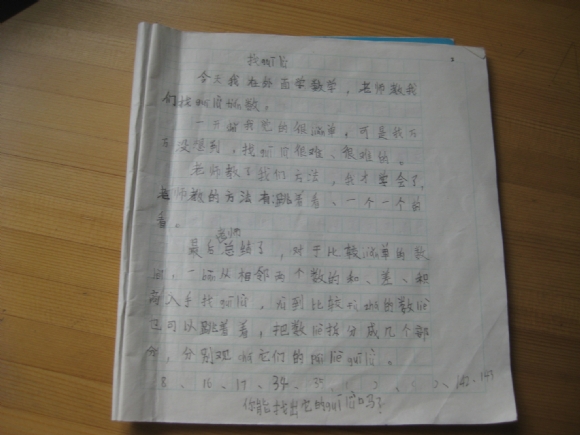 找规律
今天我在外面学数学,老师教我
们找规律填数,
一开始我觉的很简单,可是我万
万没想到,找规律很难、很难的。
老师教了我们方法,我才学会了,
老师教的方法有跳着看、一个一个的
看。
最后老师总结了,对于比较简单的数
,一般从相邻两个数的和、差、积
商入手找规律,遇到比较的数
可以跳着看,把数拆分成几个部
分,分别观察它们的规律。
8、16、17、34、35、 142、143
你能找出它的规律吗?